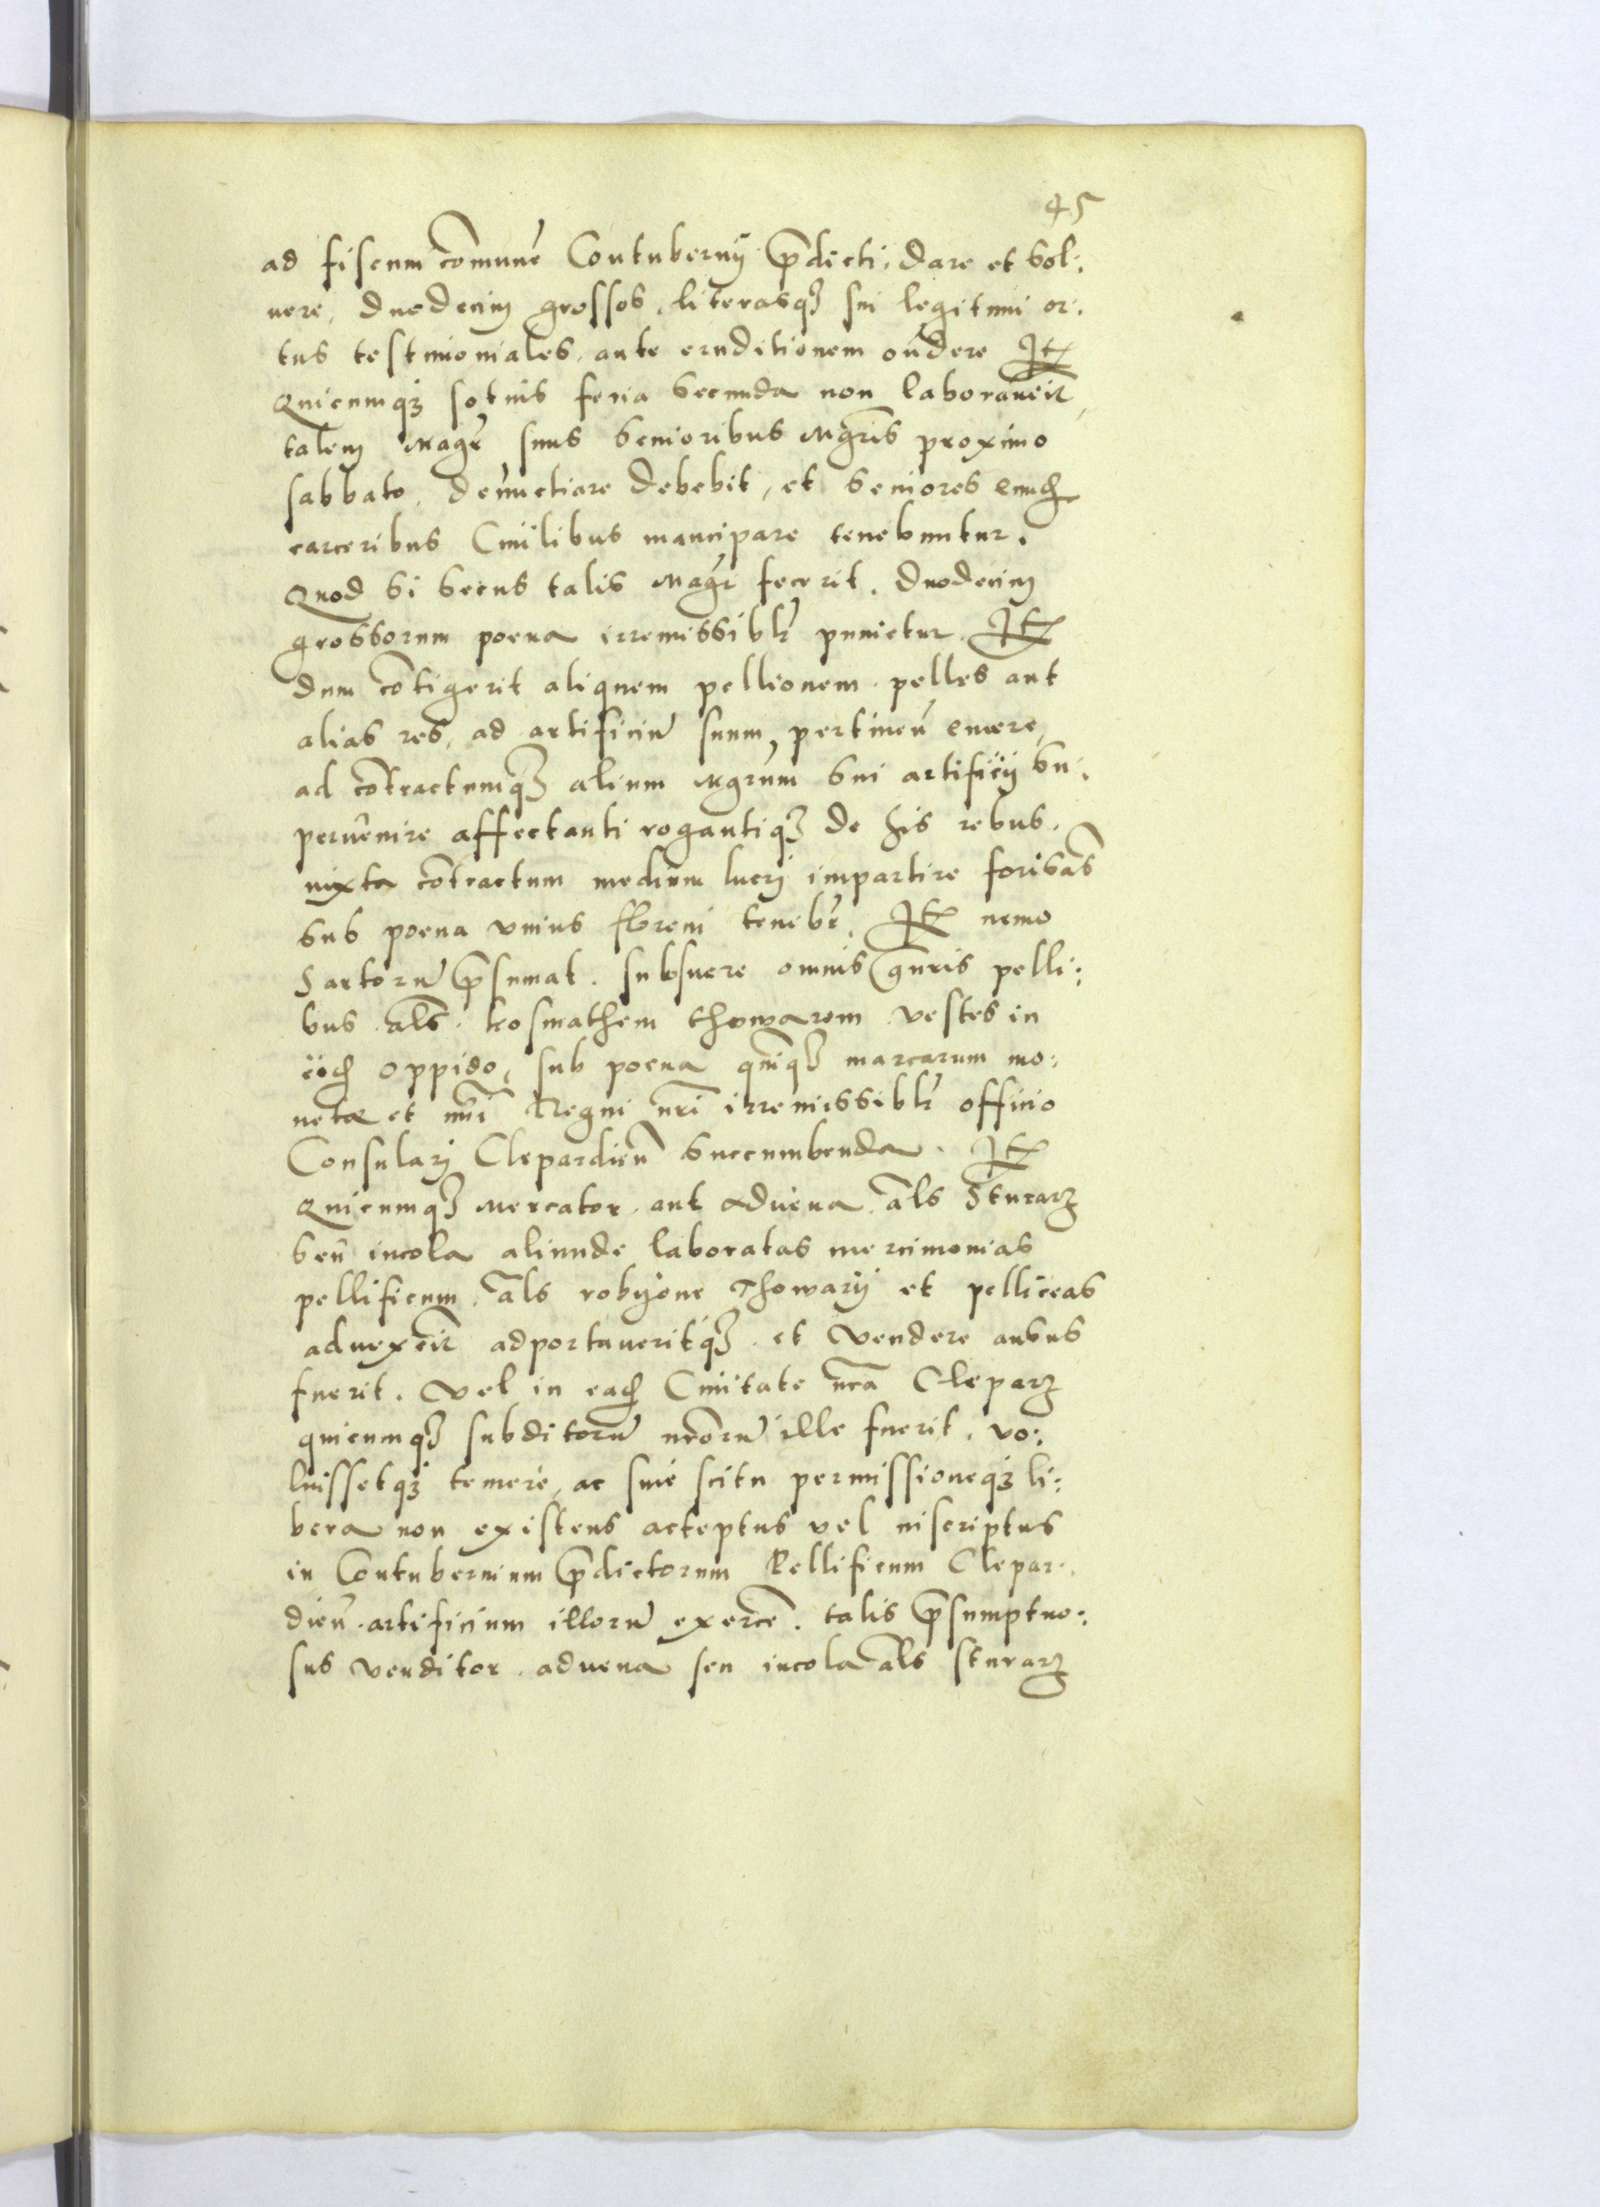 45
ad fiscum com̄unē Contubernij p̄dicti, dare et sol:
uere, duodecim grossos, literasq₃ sui legitimi or:
tus testimoniales, ante eruditionem on̄dere Itē
Quicumq₃ sotius feria secunda non laborauerit,
talem Magr̄ suus senioribus Mgr̄is proximo
sabbato, denūctiare debebit, et seniores eund̄
carceribus Ciuilibus mancipare tenebuntur.
Quod si secus talis Magr̄ fecerit, duodecim
grossorum poena irremissiblr̄ punietur. Itē
dum cōtigerit aliquem pellionem pelles aut
alias res, ad artificiū suum, pertineñ emere,
ad cōtractumq₃ alium Mgrūm sui artificij su:
peruenire affectanti rogantiq₃ de his rebus,
iuxta cōtractum medium lucrj impartire forisañ
sub poena vnius floreni tenebr̄. Itē nemo
Sartorū p̄sumat subsuere omnis gn̄ris pelli:
bus al̄s kosmathem thowarem vestes in
eōd̄ oppido, sub poena quīq₃ marcarum mo:
netæ et nūi Regni nr̄i irremissiblr̄ officio
Consularj Clepardieñ succumbenda. Itē
Quicumq₃ Mercator aut aduena al̄s Sturarz
seū incola aliunde laboratas mercimonias
pellificum al̄s robijone Thowarij et pelliceas
aduexerit adportaueritq₃ et vendere ausus
fuerit. vel in ead̄ Ciuitate nr̄a Cleparz
quicumq₃ subditorū nr̄orū ille fuerit, vo:
luissetq₃ temere, ac sine scitu permissioneq₃ li:
bera non existens acceptus vel inscriptus
in Contubernium p̄dictorum Pellificum Clepar:
dieñ artificium illorū exercē. talis p̄sumptuo:
sus venditor aduena seu incola al̄s sturarz